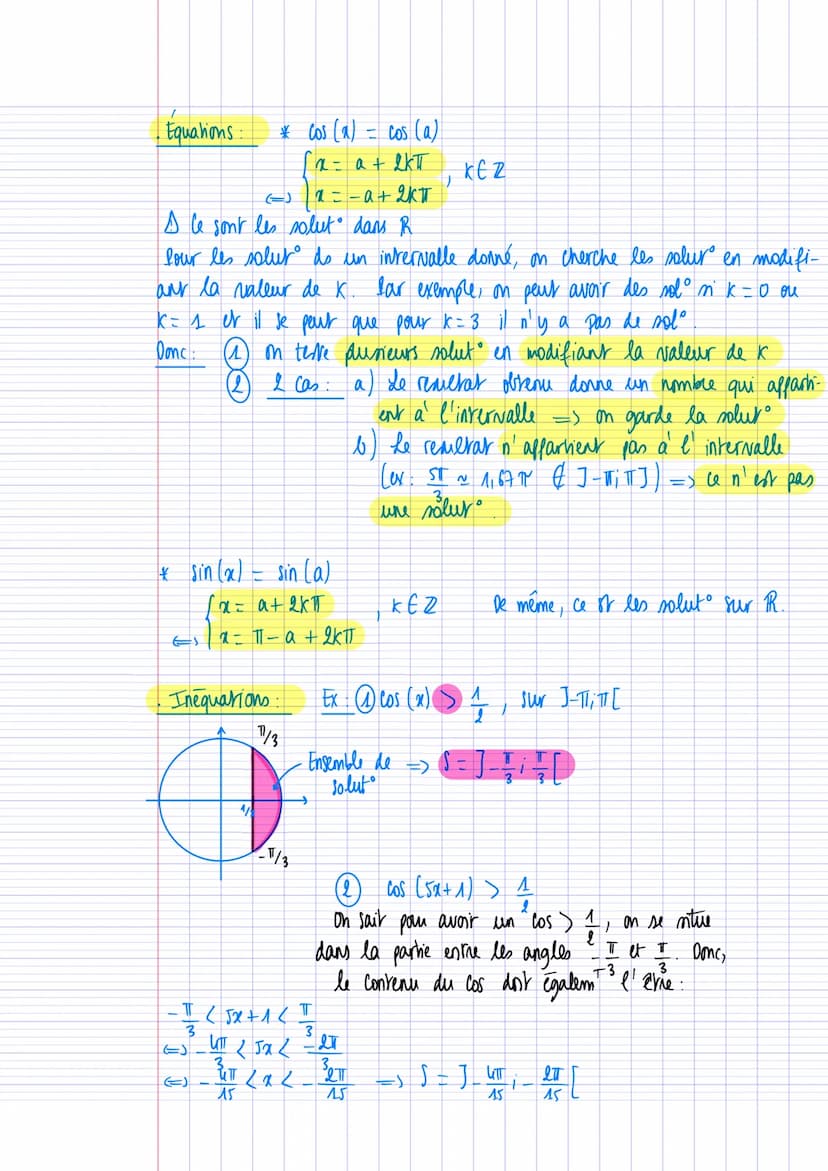 . Équations : * cos (x) = cos (a)
⟺ { x = a + 2kπ
x = -a + 2kπ , k ∈ ℤ
⚠ Ce sont les solut° dans ℝ
Pour les solut° ds un intervalle donné, on cherche les solut° en modifi-
ant la valeur de k. Par exemple, on peut avoir des sol° si k = 0 ou
k = 1 et il se peut que pour k = 3 il n'y a pas de sol°.
Donc : ① on teste plusieurs solut° en modifiant la valeur de k
② 2 cas : a) Le resultat obtenu donne un nombre qui apparti-
ent à l'intervalle => on garde la solut°
b) Le resultat n'appartient pas à l'intervalle
(ex : 5π/3 ≃ 1,67π ∉ ]-π;π]) => ce n'est pas
une solut°.
* sin(x) = sin(a)
⟺ { x = a + 2kπ
x = π - a + 2kπ , k ∈ ℤ De même, ce st les solut° sur ℝ.
. Inéquations : Ex : ① cos (x) > 1/2 , sur ]-π;π[
π/3
Ensemble de solut° => S = ]-π/3 ; π/3[
1/2
-π/3
② cos (5x+1) > 1/2
On sait pour avoir un cos > 1/2, on se situe
dans la partie entre les angles -π/3 et π/3. Donc,
le contenu du cos doit égalemT l'être :
-π/3 < 5x+1 < π/3
⟺ -4π/3 < 5x < -2π/3
⟺ -4π/15 < x < -2π/15 => S = ]-4π/15 ; -2π/15[